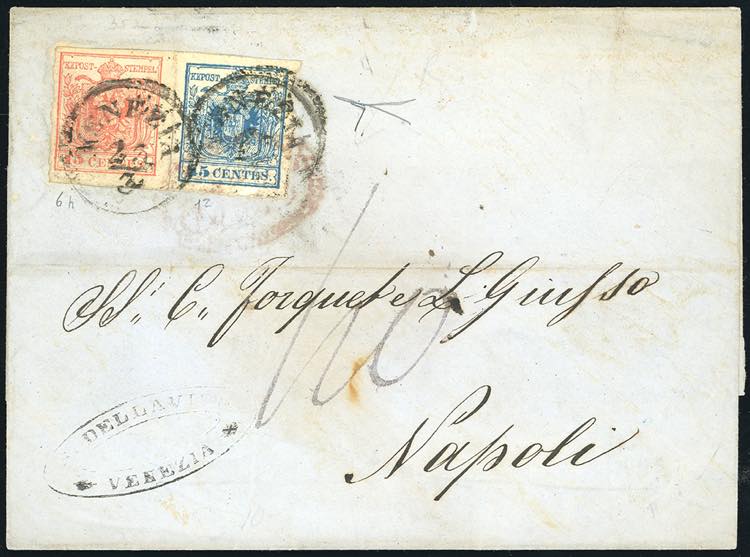 KKPOST-STEMPEL
15 CENTES.
KKPOST-STEMPEL
45 CENTES.
VENEZIA
VENEZIA
6 h
12
10
SS.ri C. Forquet e L. Giusso
Napoli
DELLAVI
* VENEZIA *